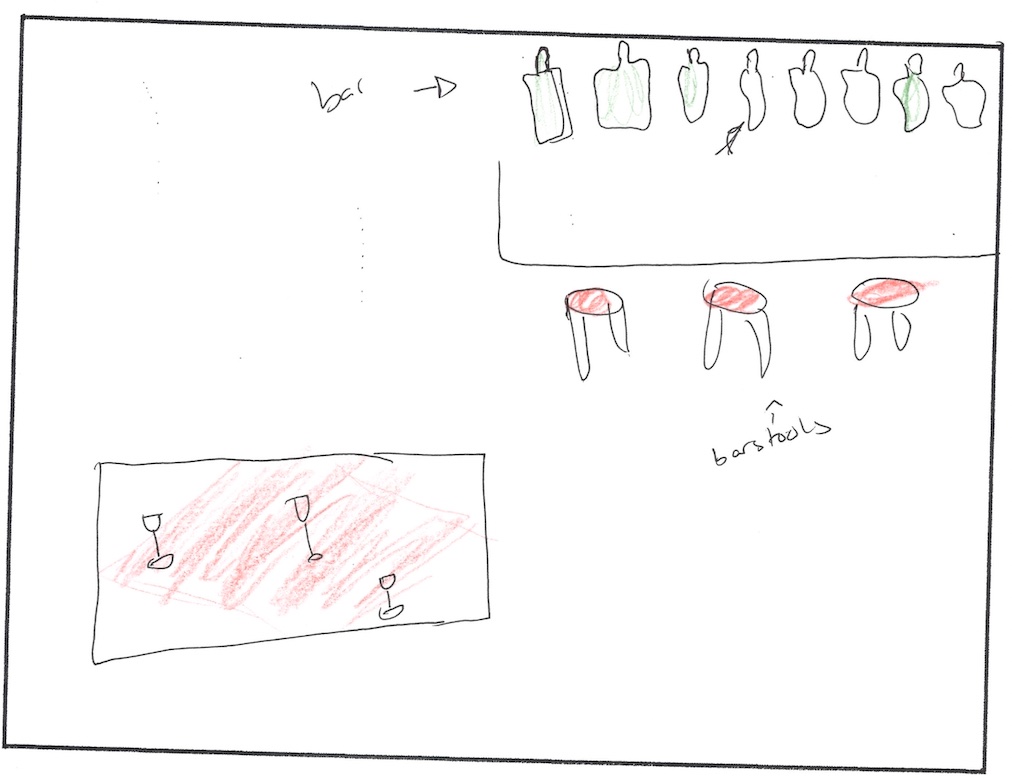 bar
barstools